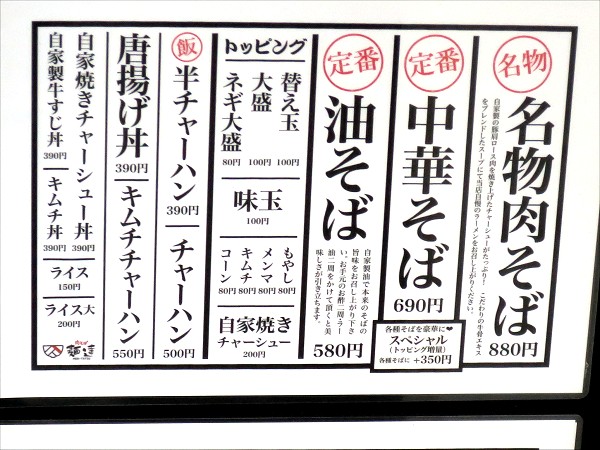 名物
名物肉そば
自家製の豚肩ロース肉を焼き上げたチャーシューがたっぷり!こだわりの牛骨エキス
をブレンドしたスープにて当店自慢のラーメンをお召し上がりください。
880円
定番
中華そば
690円
各種そばを豪華に❤
スペシャル
(トッピング増量)
各種そばに +350円
定番
油そば
自家製油で本来のそばの
旨味をお召し上がり下さ
い。お手元のお酢二周ラー
油二周をかけて頂くと美
味しさが引き立ちます。
580円
トッピング
替え玉
100円
大盛
100円
ネギ大盛
80円
味玉
100円
もやし
80円
メンマ
80円
キムチ
80円
コーン
80円
自家焼き
チャーシュー
200円
飯
半チャーハン
390円
チャーハン
500円
唐揚げ丼
390円
キムチチャーハン
550円
自家焼きチャーシュー丼
390円
自家製牛すじ丼
390円
キムチ丼
390円
ライス
150円
ライス大
200円
麺達